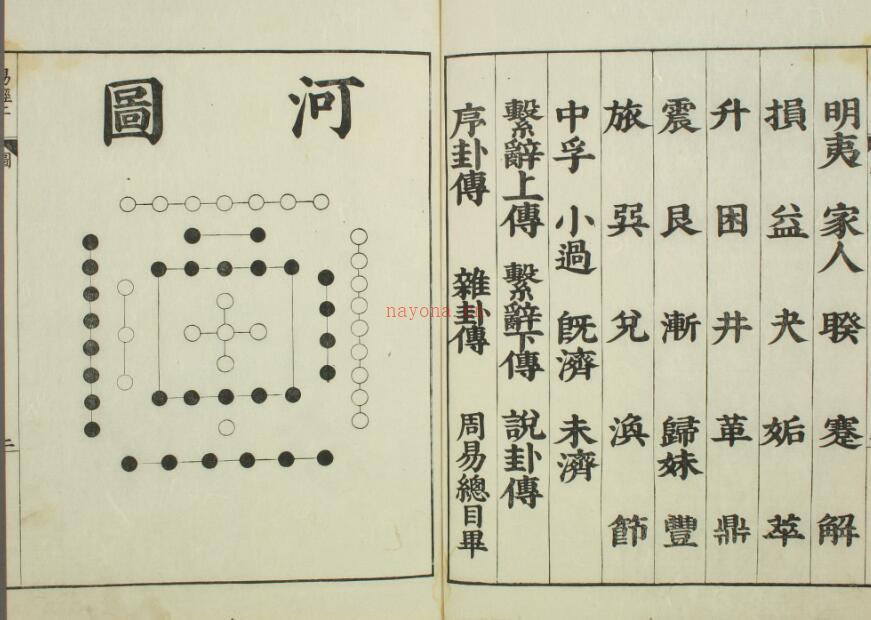 明夷 家人 睽 蹇 解
損 益 夬 姤 萃
升 困 井 革 鼎
震 艮 漸 歸妹 豐
旅 巽 兌 渙 節
中孚 小過 既濟 未濟
繫辭上傳 繫辭下傳 說卦傳
序卦傳 雜卦傳 周易總目畢
河圖
圖
nayona.cn